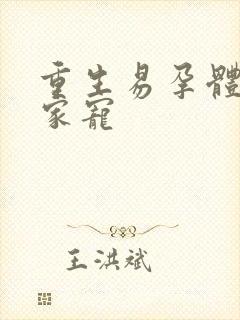 重生易孕體
家寵
王洪斌